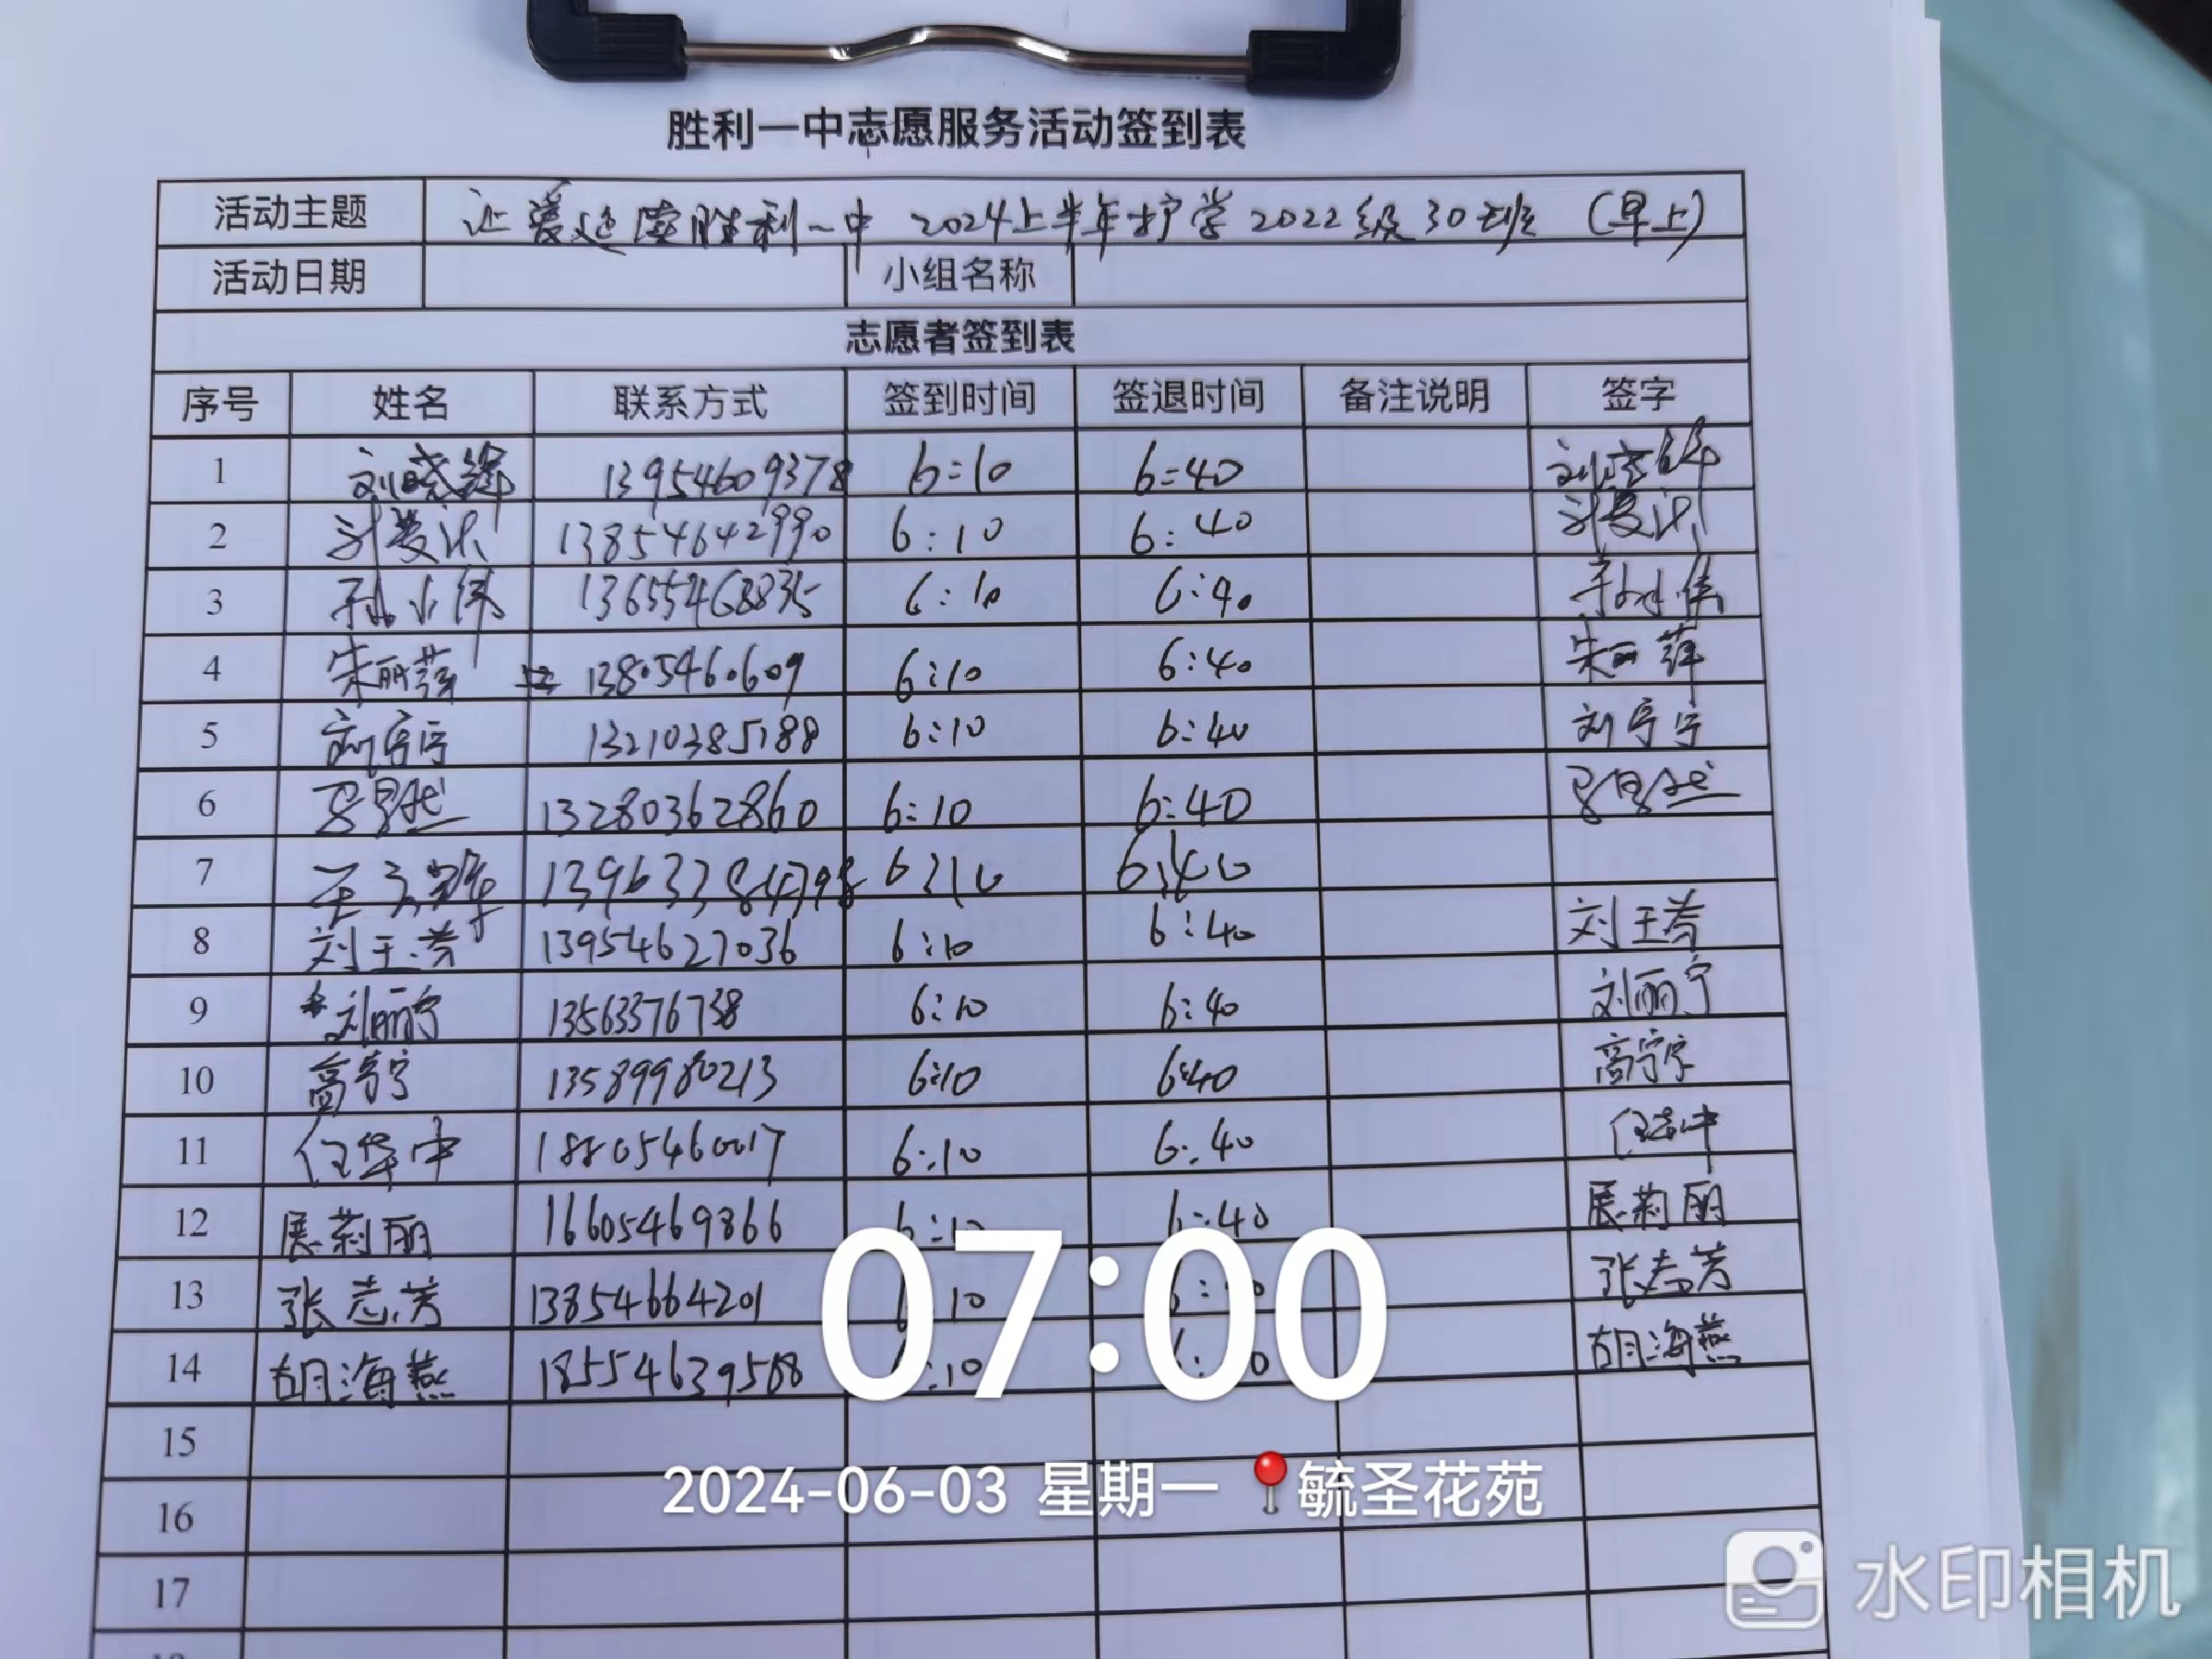 胜利一中志愿服务活动签到表
活动主题 让爱延续胜利一中 2024上半年护学 2022级30班 (早上)
活动日期 小组名称
志愿者签到表
序号 姓名 联系方式 签到时间 签退时间 备注说明 签字
1 刘晓辉 13954609378 6:10 6:40 刘晓辉
2 13854642990 6:10 6:40
3 孙小伟 13655468835 6:10 6:40 孙小伟
4 朱丽萍 13805460609 6:10 6:40 朱丽萍
5 刘宁宁 13210385188 6:10 6:40 刘宁宁
6 13280362860 6:10 6:40
7 6:10 6:40
8 刘玉芳 13954627036 6:10 6:40 刘玉芳
9 刘丽宁 13563376738 6:10 6:40 刘丽宁
10 高宁宁 13589980213 6:10 6:40 高宁宁
11 任华中 18805460017 6:10 6:40 任华中
12 展莉丽 16605469866 6:10 6:40 展莉丽
13 张志芳 13854664201 6:10 张志芳
14 胡海燕 胡海燕
07:00
15
2024-06-03 星期一 毓圣花苑
16
17
水印相机